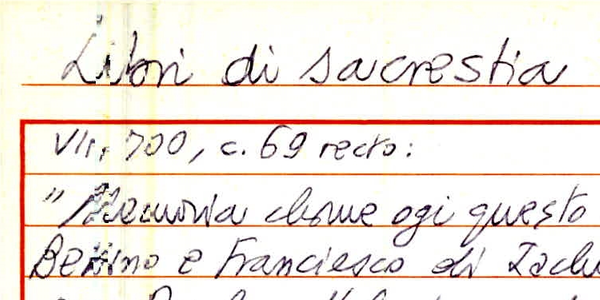 Libri di sacrestia
VII, 700, c. 69 recto:
"Memoria chome ogi questo
Bettino e Franciesco di